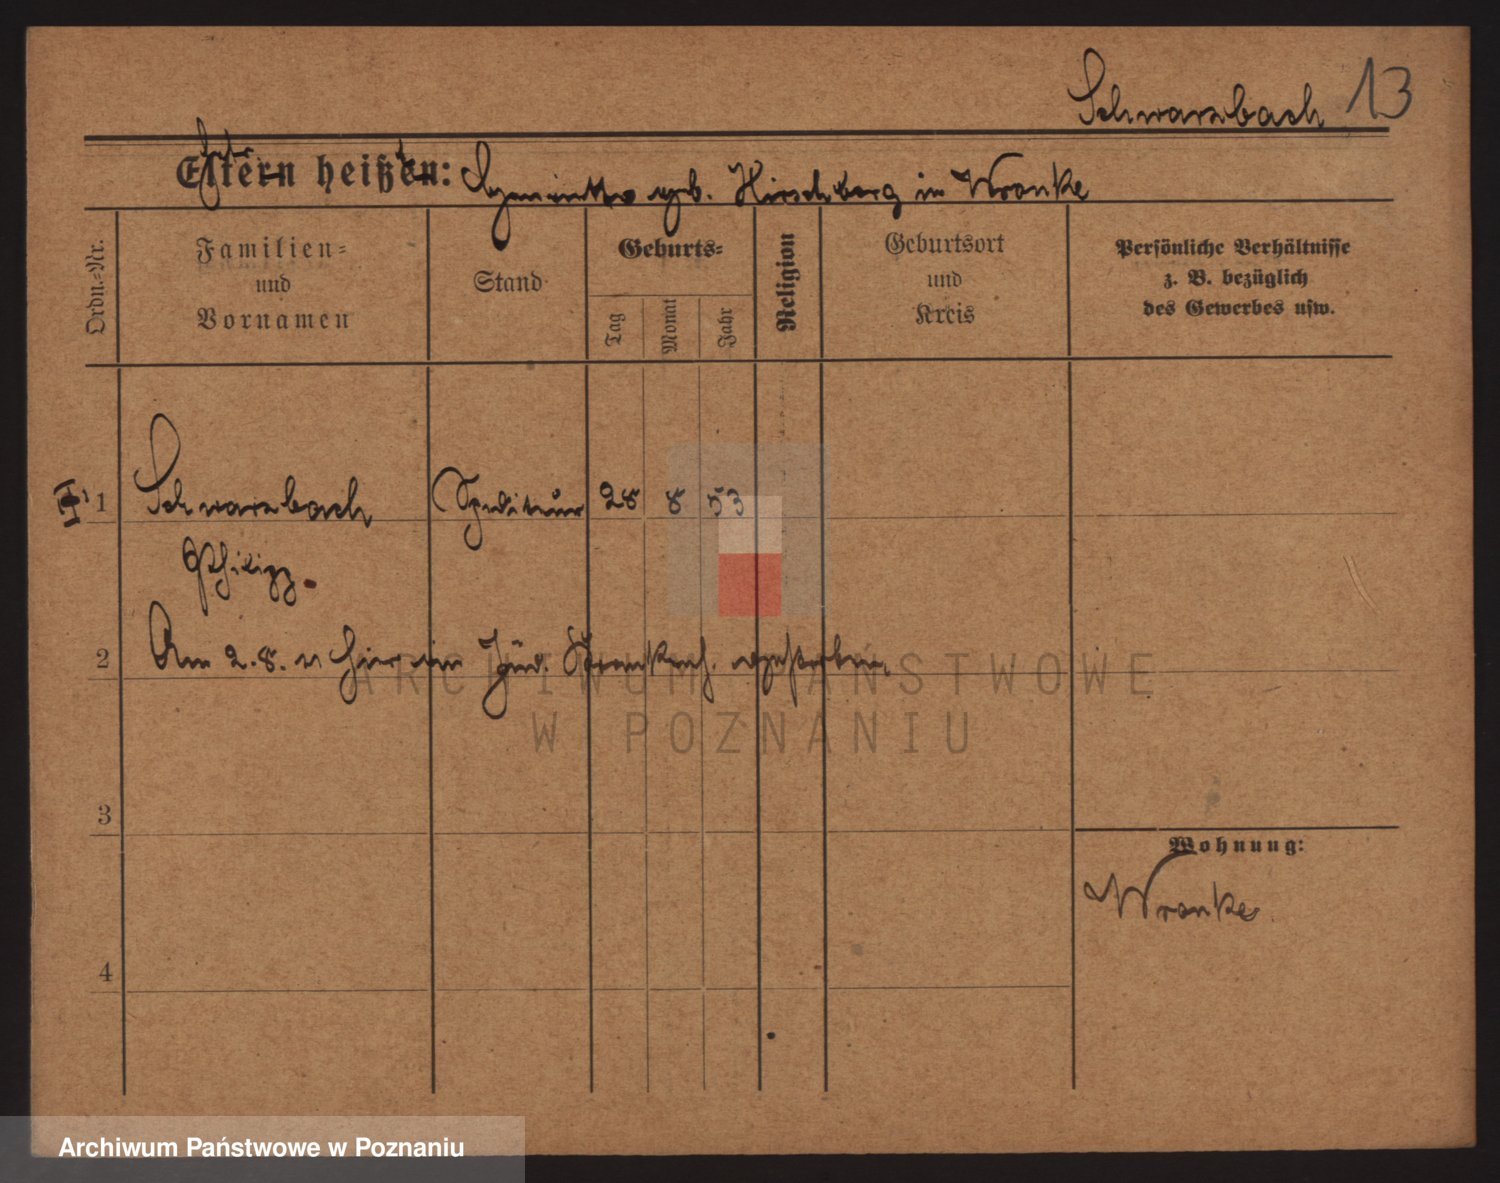 Schwarzbach 13
Eltern heißen: geb. Hirschberg in Wronke
Ordn.-Nr.
Familien- und Vornamen
Stand
Geburts-
Tag
Monat
Jahr
Religion
Geburtsort und Kreis
Persönliche Verhältnisse
z. B. bezüglich
des Gewerbes usw.
1 Schwarzbach Spediteur 28 8 53
Philipp.
2 Am 2.8. hier im Jüd. Krankenh. verstorben.
3
Wohnung:
Wronke
4
ARCHIWUM PAŃSTWOWE
W POZNANIU
Archiwum Państwowe w Poznaniu